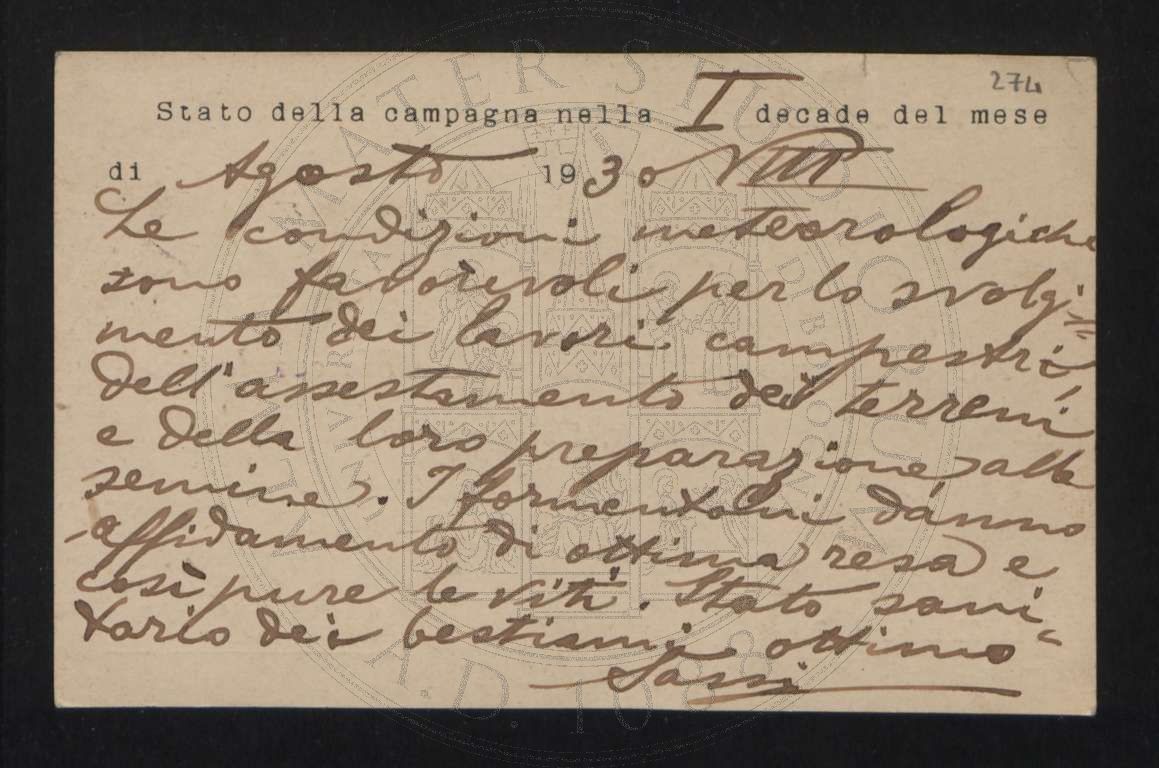 274
Stato della campagna nella I decade del mese
di Agosto 1930 VIII
Le condizioni meteorologiche
sono favorevoli per lo svolgi=
mento dei lavori campestri,
dell'assestamento dei terreni
e della loro preparazione alle
semine. I formentoni danno
affidamento di ottima resa e
così pure le viti. Stato sani-
tario dei bestiami ottimo
Sassi